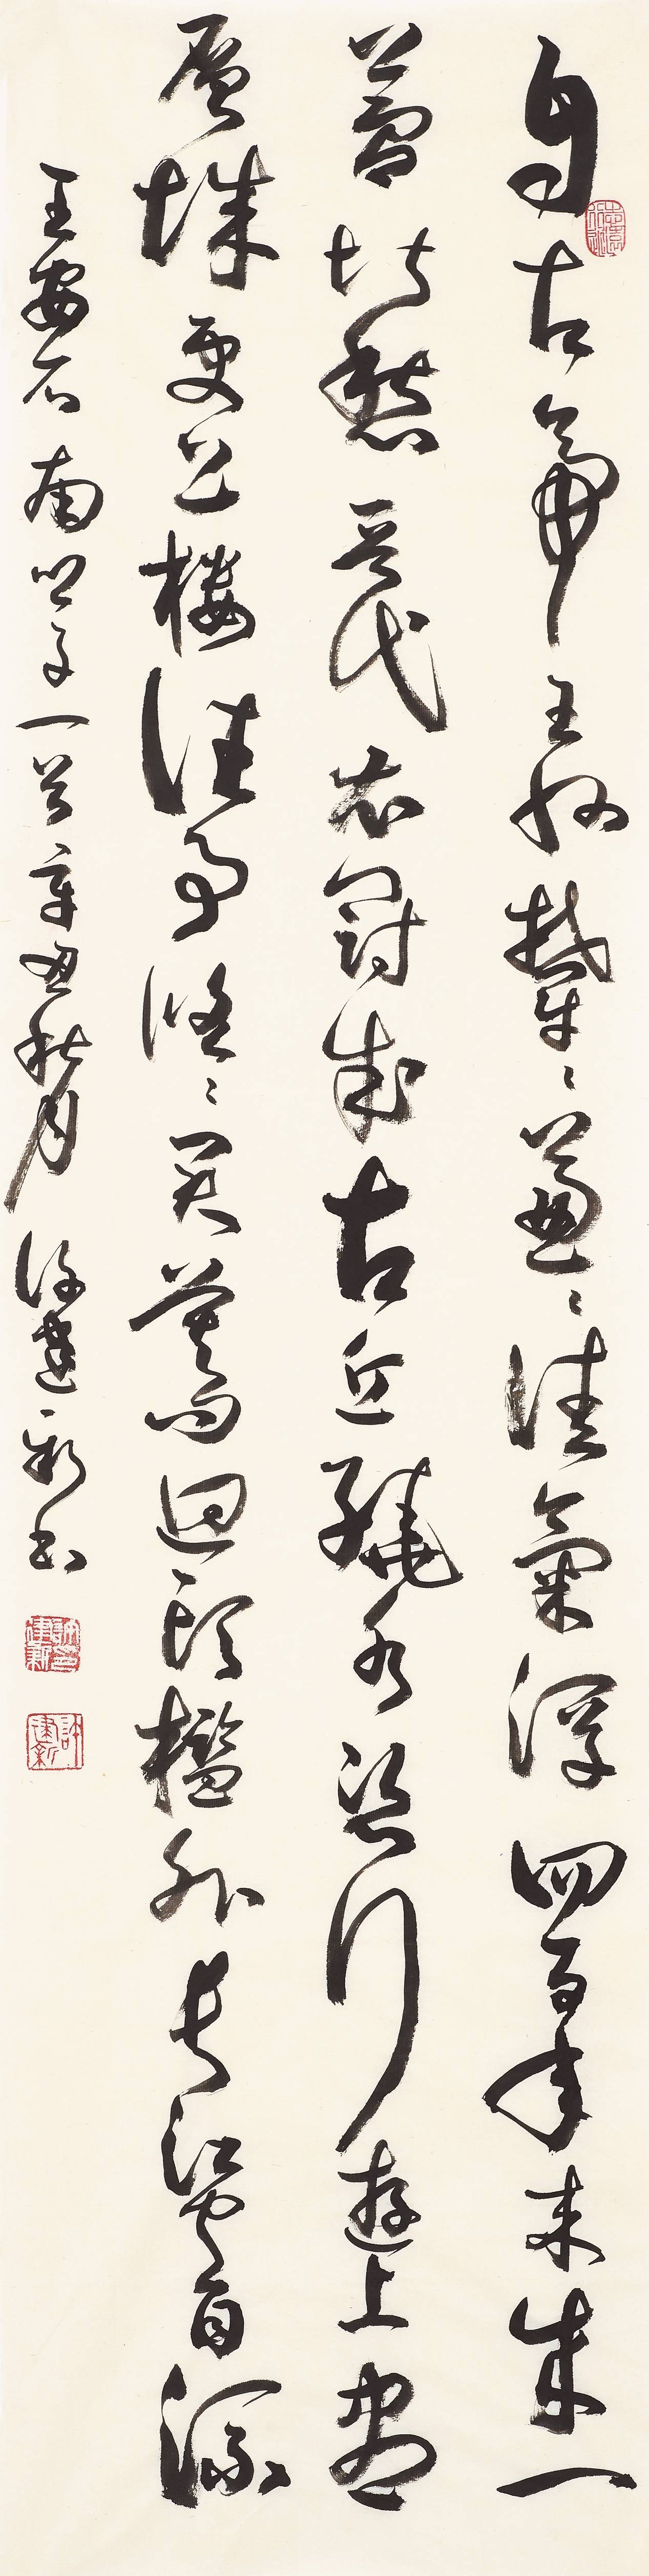 自古帝王州鬱〻蔥〻佳氣浮四百年来成一
夢堪愁晋代衣冠成古丘繞水恣行遊上盡
層城更上樓往事悠〻君莫問迴頭檻外長江空自流
王安石南鄉子一首辛丑秋月許建新书
許建新